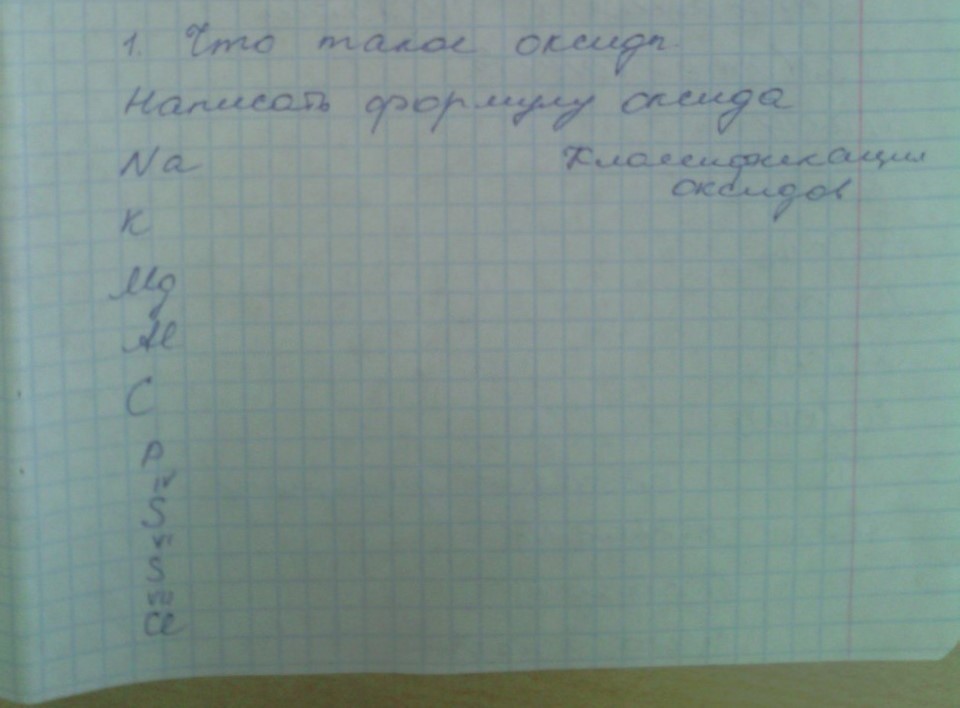 1. Что такое оксиды
Написать формулу оксида
Na
Классификация
оксидов
K
Mg
Al
C
P
IV
S
VI
S
VII
Cl